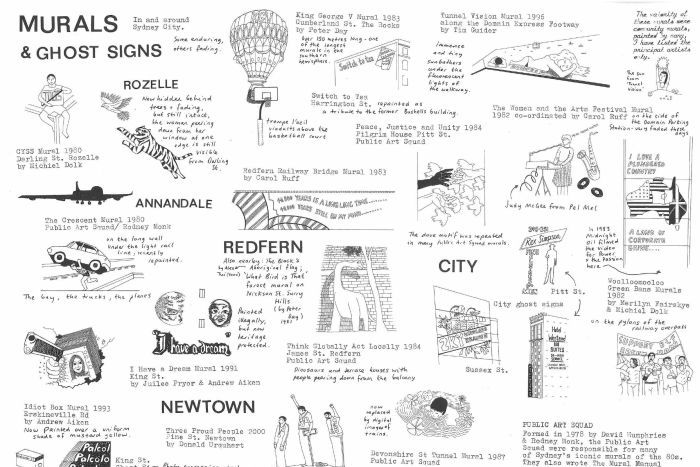 MURALS
& GHOST SIGNS
In and around
Sydney City.
Some enduring,
others fading.
King George V Mural 1983
Cumberland St. The Rocks
by Peter Day
Over 150 metres long - one
of the longest
murals in the
southern
hemisphere.
Switch to Tea
Switch to Tea
Harrington St. repainted as
a tribute to the former Bushells building.
trompe l'oeil
viaducts above the
basketball court
Peace, Justice and Unity 1984
Pilgrim House Pitt St.
Public Art Squad
Tunnel Vision Mural 1996
along the Domain Express Footway
by Tim Guider
Immense
and tiny
sunbathers
under the
fluorescent
lights of
the walkway.
The majority of
these murals were
community murals,
painted by many,
I have listed the
principal artists
only.
The sun
from
Tunnel
Vision
The Women and the Arts Festival Mural
1982 co-ordinated by Carol Ruff
on the side of
the Domain Parking
Station - very faded these
days
Judy McGee from Pel Mel
I LOVE A
PLUNDERED
COUNTRY
A LAND OF
CORPORATE
GREED...
ROZELLE
Now hidden behind
trees + fading,
but still intact,
the women peering
down from her
window at one
edge is still
visible
from Darling
St.
CYSS Mural 1980
Darling St. Rozelle
by Michiel Dolk
Redfern Railway Bridge Mural 1983
by Carol Ruff
40,000 YEARS IS A LONG LONG TIME
40,000 YEARS STILL ON MY MIND
ANNANDALE
The Crescent Mural 1980
Public Art Squad/ Rodney Monk
on the long wall
under the light rail
line, recently
repainted.
The bay, the trucks, the planes
REDFERN
Also nearby: The Block's
Aboriginal flag,
'What Bird is That'
forest mural on
Nickson St. Surry
Hills
(by Peter
Day)
1981
Painted
illegally,
but now
heritage
protected.
I have a dream
I Have a Dream Mural 1991
King St.
by Juilee Pryor & Andrew Aiken
The dove motif was repeated
in many Public Art Squad murals.
Think Globally Act Locally 1984
James St. Redfern
Public Art Squad
Dinosaurs and terrace houses with
people peering down from the balcony
CITY
Rex Simpson
Pitt St.
City ghost signs
Sussex St.
Hotel
Westend
SUITES
In 1983
Midnight
Oil filmed
the video
for Power
& the Passion
here
Woolloomooloo
Green Bans Murals
1982
by Merilyn Fairskye
& Michiel Dolk
on the pylons of the
railway overpass
Idiot Box Mural 1993
Erskineville Rd
by Andrew Aiken
Now Painted over a uniform
shade of mustard yellow.
NEWTOWN
Three Proud People 2000
Pine St. Newtown
by Donald Urquhart
now
replaced
by digital
images of
trains.
Devonshire St Tunnel Mural 1987
Public Art Squad
PUBLIC ART SQUAD
Formed in 1978 by David Humphries
& Rodney Monk, the Public Art
Squad were responsible for many
of Sydney's iconic murals of the 80s.
They also wrote the Mural Manual
Palcol
Palcolo
King St.